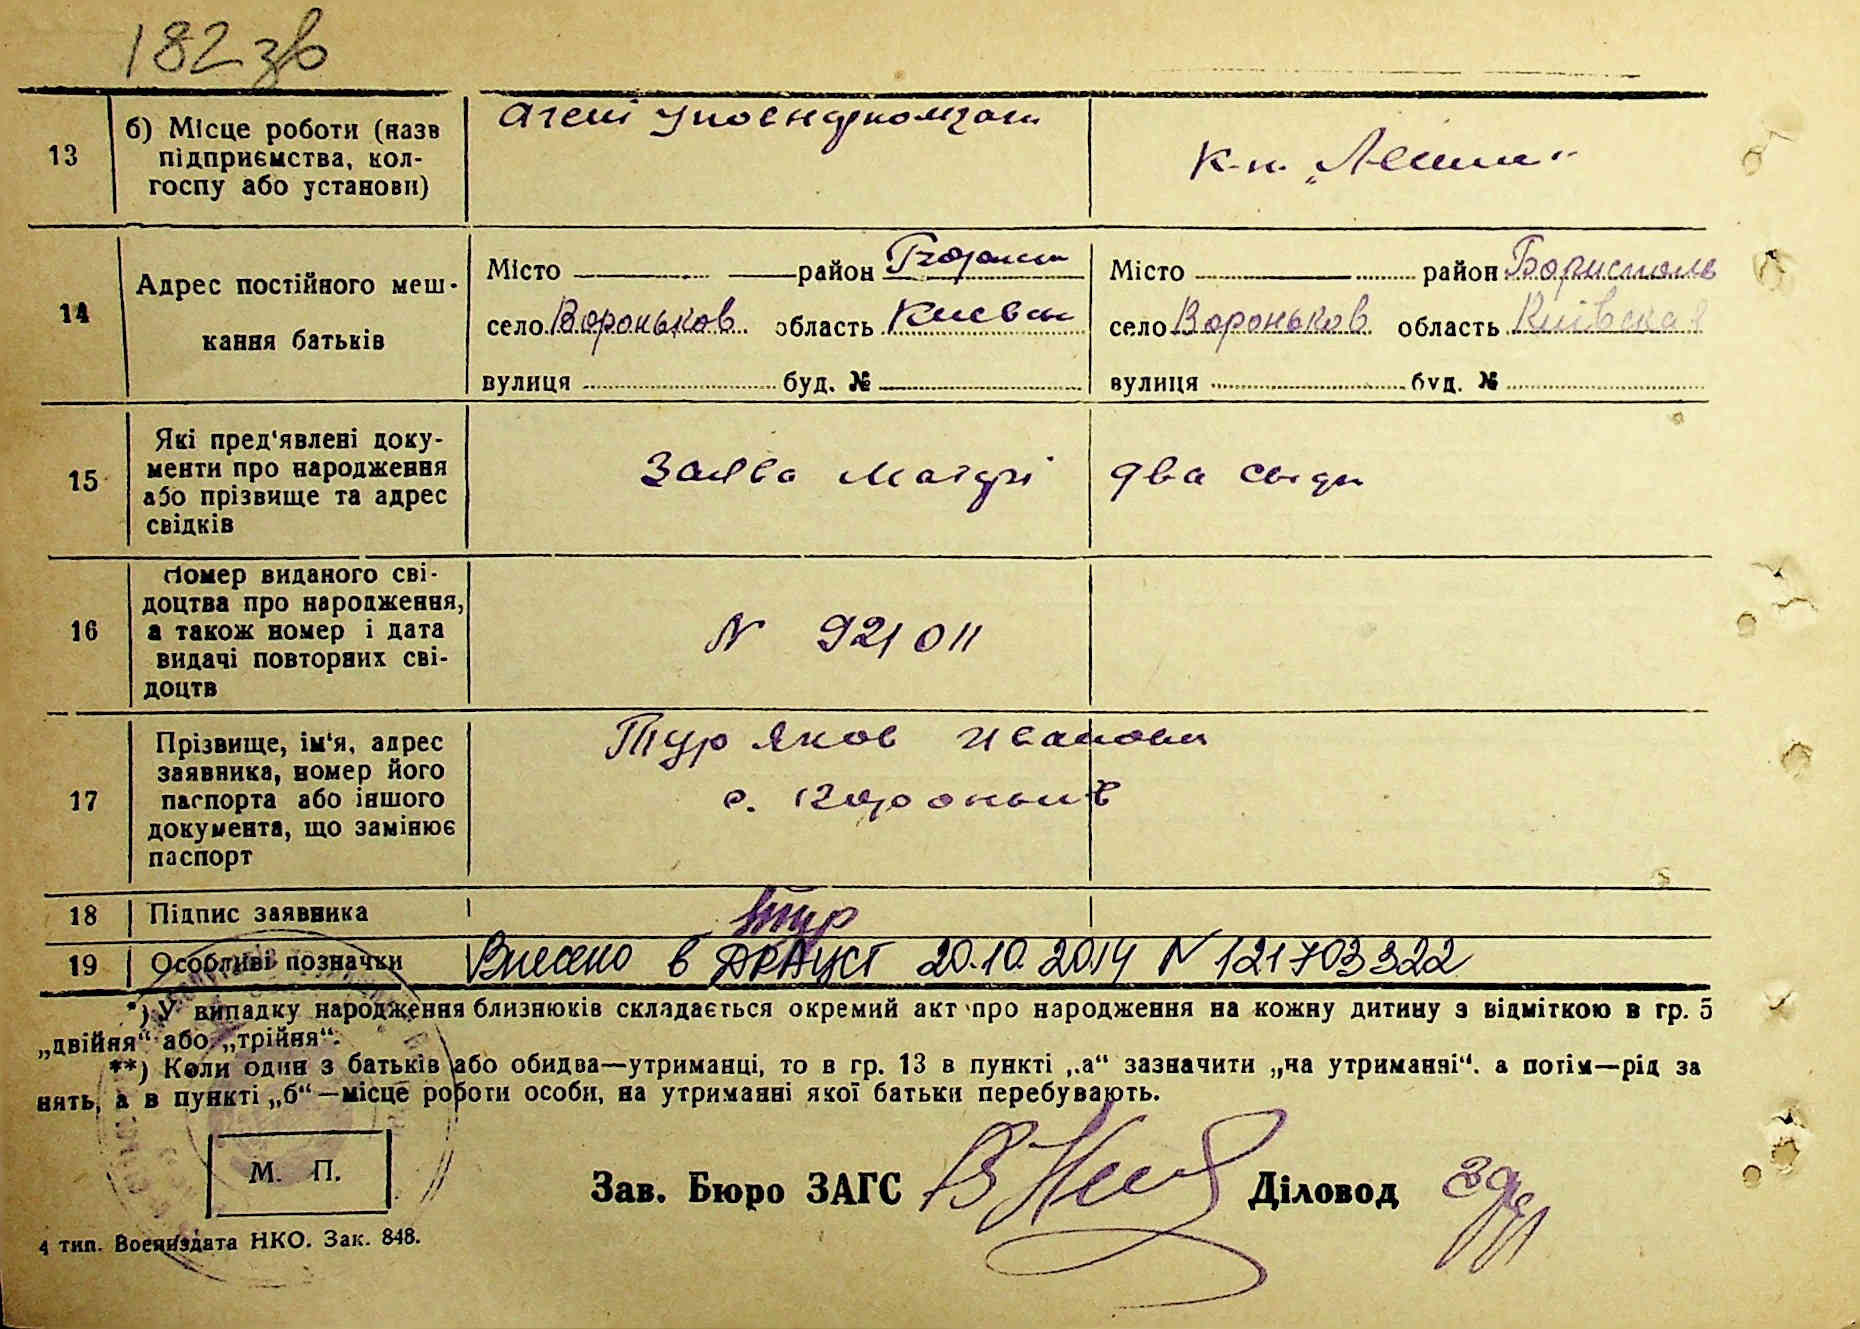 182 зв
13
б) Місце роботи (назв
підприємства, кол-
госпу або установи)
Агент
к-п. „Ленина“
14
Адрес постійного меш-
кання батьків
Місто район
село Вороньков область Киевск
вулиця буд. №
Місто район Борисполь
село Вороньков область Київская
вулиця буд. №
15
Які пред'явлені доку-
менти про народження
або прізвище та адрес
свідків
Заява матері два
16
Номер виданого сві-
доцтва про народження,
а також номер і дата
видачі повторних сві-
доцтв
N 921011
17
Прізвище, ім'я, адрес
заявника, номер його
паспорта або іншого
документа, що замінює
паспорт
Тур Яков Иванович
с. Вороньків
18 Підпис заявника Тур
19 Особливі позначки Внесено в ДРАЦСГ 20.10.2014 N 121703322
*) У випадку народження близнюків складається окремий акт про народження на кожну дитину з відміткою в гр. 5
„двійня“ або „трійня“.
**) Коли один з батьків або обидва—утриманці, то в гр. 13 в пункті „а“ зазначити „на утриманні“. а потім—рід за
нять, а в пункті „б“—місце роботи особи, на утриманні якої батьки перебувають.
М. П.
Зав. Бюро ЗАГС Діловод
4 тип. Воениздата НКО. Зак. 848.